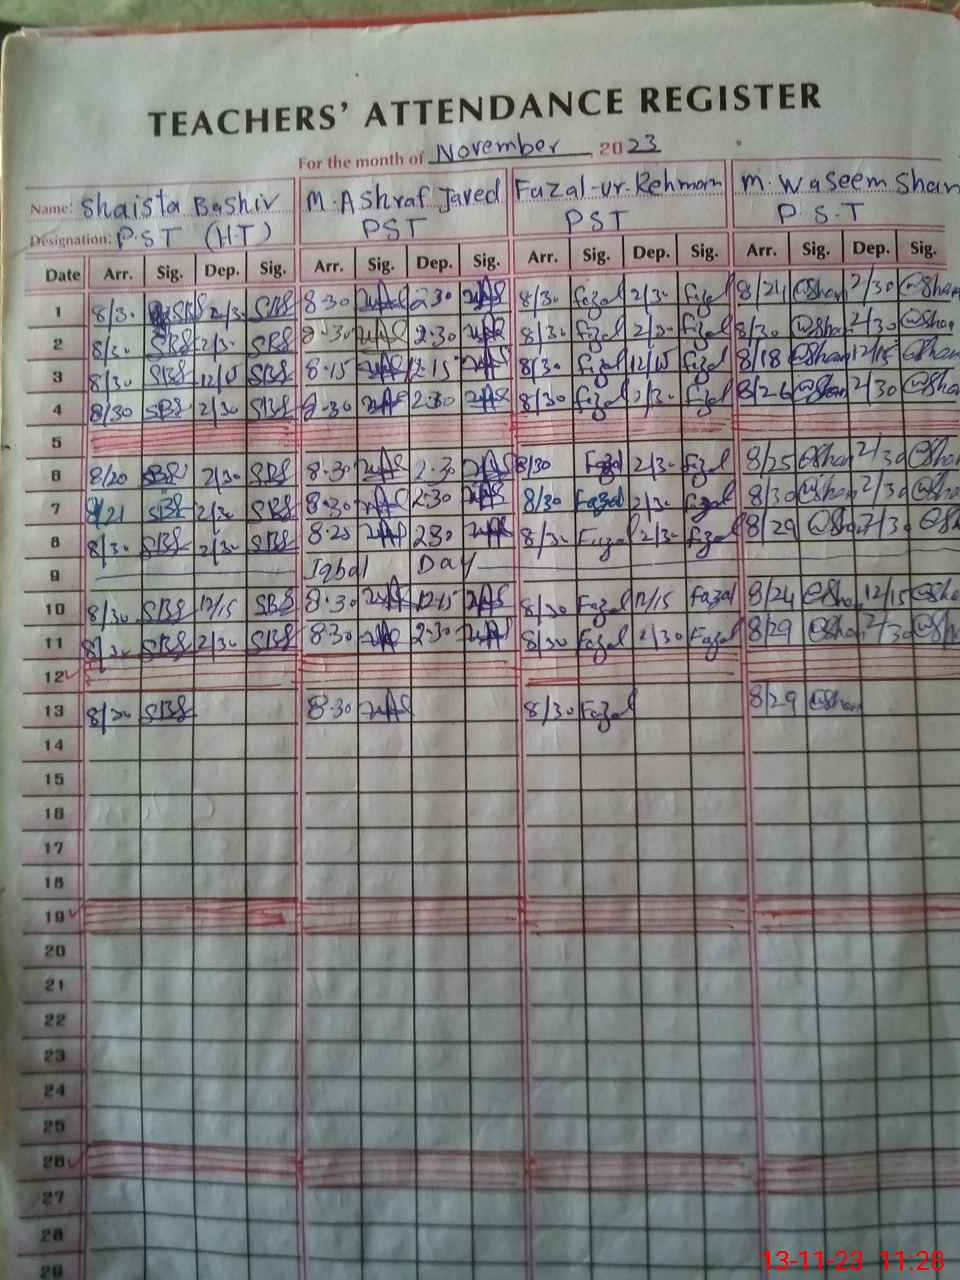 TEACHERS' ATTENDANCE REGISTER
For the month of November 2023
Name: Shaista Bashir M. Ashraf Javed Fazal-ur-Rehman M. Waseem Shan
Designation: P.S.T (HT) PST PST P.S.T
Date Arr. Sig. Dep. Sig. Arr. Sig. Dep. Sig. Arr. Sig. Dep. Sig. Arr. Sig. Dep. Sig.
1 8/30 SBS 2/30 SBS 8.30 2.30 8/30 Fazal 2/30 Fazal 8/24 @Shan 2/30 @Shan
2 8/30 SBS 2/30 SBS 8.30 2.30 8/30 Fazal 2/30 Fazal 8/30 @Shan 2/30 @Shan
3 8/30 SBS 12/15 SBS 8.15 12.15 8/30 Fazal 12/15 Fazal 8/18 @Shan 12/15 @Shan
4 8/30 SBS 2/30 SBS 8.30 2.30 8/30 Fazal 2/30 Fazal 8/26 @Shan 2/30 @Shan
5
6 8/20 SBS 2/30 SBS 8.30 2.30 8/30 Fazal 2/30 Fazal 8/25 @Shan 2/30 @Shan
7 8/21 SBS 2/30 SBS 8.30 2.30 8/30 Fazal 2/30 Fazal 8/30 @Shan 2/30 @Shan
8 8/30 SBS 2/30 SBS 8.25 2.30 8/30 Fazal 2/30 Fazal 8/29 @Shan 2/30 @Shan
9 Iqbal Day
10 8/30 SBS 12/15 SBS 8.30 12.15 8/30 Fazal 12/15 Fazal 8/24 @Shan 12/15 @Shan
11 8/30 SBS 2/30 SBS 8.30 2.30 8/30 Fazal 2/30 Fazal 8/29 @Shan 2/30 @Shan
12
13 8/20 SBS 8.30 8/30 Fazal 8/29 @Shan
14
15
16
17
18
19
20
21
22
23
24
25
26
27
28
29
13-11-23 11:28